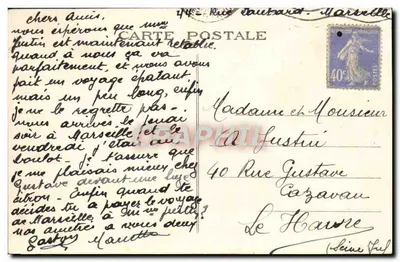 44 - Rue Marseille
chers Amis.
nous espérons que
est maintenant rétablie.
CARTE POSTALE
quand à nous ça va
parfaitement, et nous avons
fait un voyage épatant
mais un peu long, enfin
je ne le regrette pas -
nous arrivés le jeudi
soir à Marseille; et le
vendredi j'étais au
boulot - je t'assure que
je me plaisais mieux chez
Gustave devant une
- Enfin quand te
décides tu a payer le voyage
de Marseille à
nos amitiés a vous deux
Gaston
40c
POSTES
Madame et Monsieur
A
40 Rue Gustave
Cazavan
Le Havre
(Seine Inf)